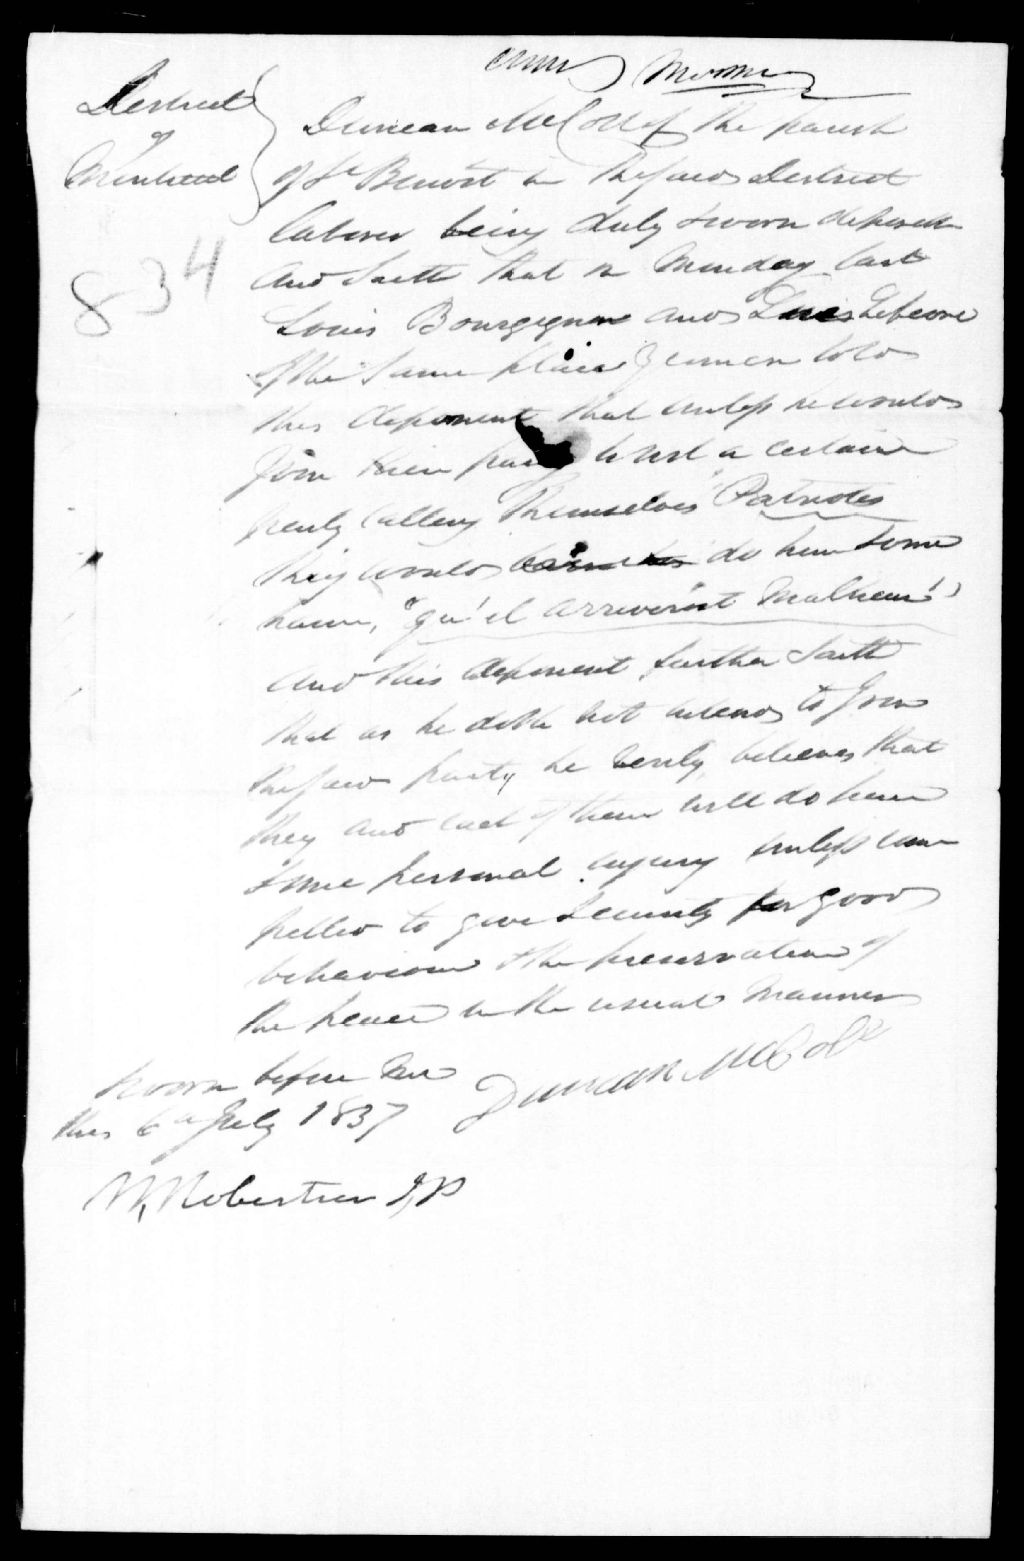 District
of
Montreal
834
Duncan McColl of the parish
of St Benoit in the said District
laborer being duly sworn deposeth
and saith that on Monday last
Louis Bourgignon and Louis Lefevre
of the same place yeomen told
this deponent that unless he would
join their party to wit a certain
party calling themselves Patriotes
they would do him some
harm, "qu'il arriveroit Malheur"
and this deponent further saith
that as he doth not intend to join
the said party he verily believes that
they and each of them will do him
some personal injury unless com
pelled to give security for good
behaviour & the preservation of
the peace in the usual manner
Sworn before me
this 6th July 1837
Duncan McColl
W, Robertson J,P